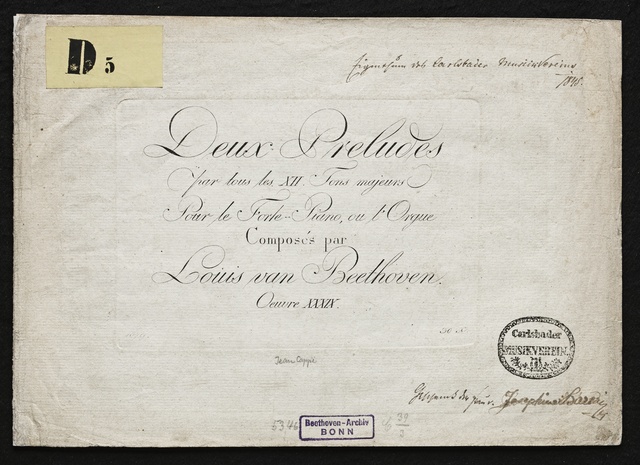 D 5
Eigenthum des Carlsbader Musikvereins
Deux Preludes
par tous les XII. Tons majeurs
Pour le Forte-Piano, ou l'Orgue
Composés par
Louis van Beethoven.
Oeuvre XXXIX.
Carlsbader
MUSIKVEREIN.
Jean Cappi.
Geschenk der
Josephine
Beethoven-Archiv
BONN